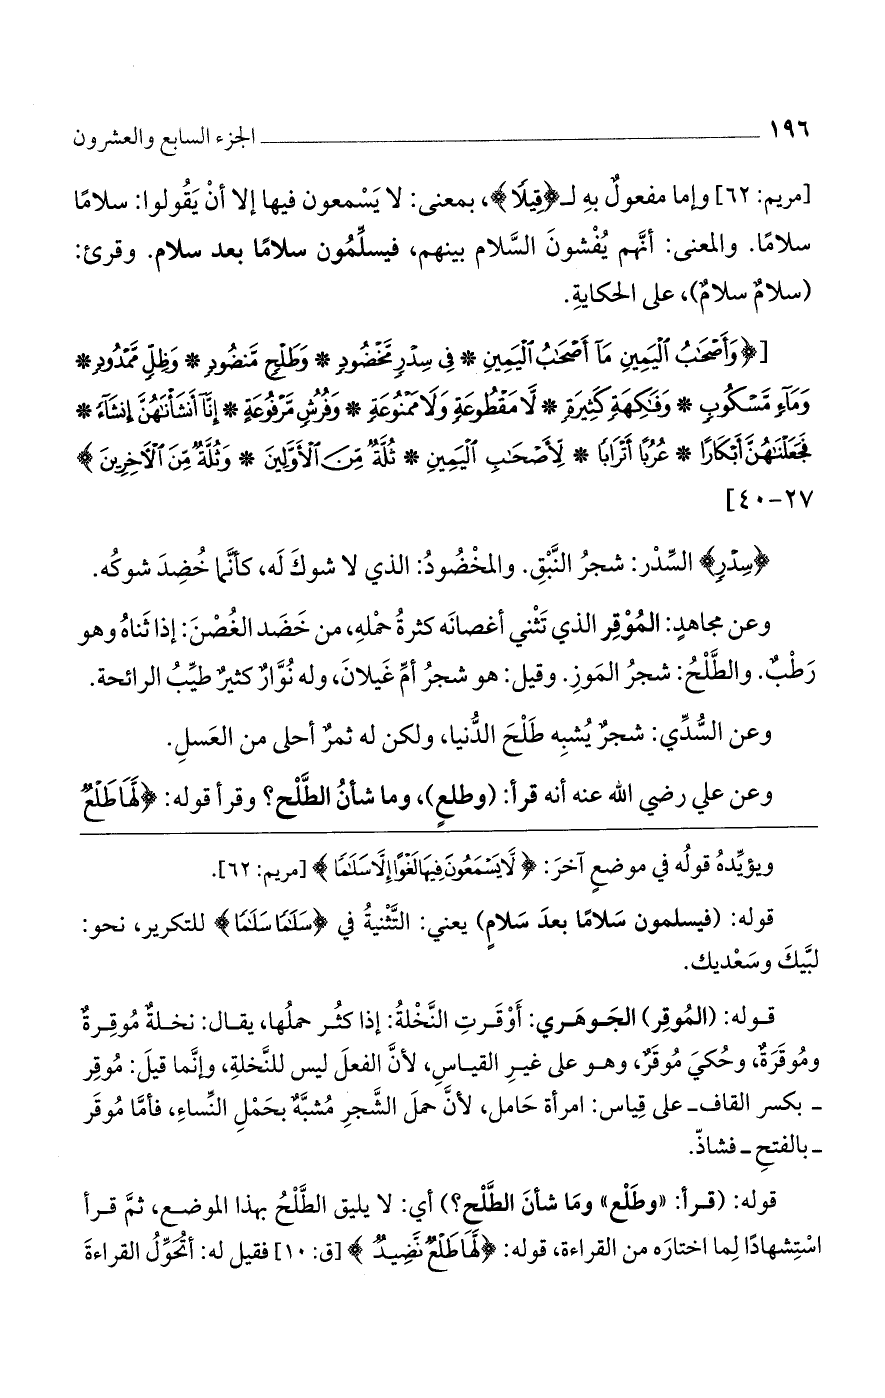 ١٩٦ ـــــــــــــــــــــــــــــــــــــــــ الجزء السابع والعشرون
[مريم: ٦٢] وإما مفعولٌ بهِ لـ﴿قِيلًا﴾، بمعنى: لا يَسْمعون فيها إلا أنْ يَقُولوا: سلامًا
سلامًا. والمعنى: أنَّهم يُفْشونَ السَّلام بينهم، فيسلِّمُون سلامًا بعد سلام. وقرئ:
(سلامٌ سلامٌ)، على الحكايةِ.
[﴿وَأَصْحَٰبُ ٱلْيَمِينِ مَآ أَصْحَٰبُ ٱلْيَمِينِ * فِى سِدْرٍ مَّخْضُودٍ * وَطَلْحٍ مَّنضُودٍ * وَظِلٍّ مَّمْدُودٍ *
وَمَآءٍ مَّسْكُوبٍ * وَفَٰكِهَةٍ كَثِيرَةٍ * لَّا مَقْطُوعَةٍ وَلَا مَمْنُوعَةٍ * وَفُرُشٍ مَّرْفُوعَةٍ * إِنَّآ أَنشَأْنَٰهُنَّ إِنشَآءً *
فَجَعَلْنَٰهُنَّ أَبْكَارًا * عُرُبًا أَتْرَابًا * لِّأَصْحَٰبِ ٱلْيَمِينِ * ثُلَّةٌ مِّنَ ٱلْأَوَّلِينَ * وَثُلَّةٌ مِّنَ ٱلْآخِرِينَ﴾
٢٧-٤٠]
﴿سِدْرٍ﴾ السِّدْر: شجرُ النَّبْقِ. والمخْضُودُ: الذي لا شوكَ لَه، كأنَّما خُضِدَ شوكُه.
وعن مجاهدٍ: المُوْقِر الذي تَثْني أغصانَه كثرةُ حمْلهِ، من خَضَد الغُصْنَ: إذا ثَناهُ وهو
رَطْبٌ. والطَّلْحُ: شجرُ المَوزِ. وقيل: هو شجرُ أمِّ غَيلانَ، وله نُوَّارٌ كثيرٌ طيِّبُ الرائحة.
وعن السُّدِّي: شجرٌ يُشبِه طَلْحَ الدُّنيا، ولكن له ثمرٌ أحلى من العَسلِ.
وعن علي رضي الله عنه أنه قرأ: (وطلعٍ)، وما شأنُ الطَّلْح؟ وقرأ قوله: ﴿لَّهَا طَلْعٌ
ويؤيِّدهُ قولُه في موضعٍ آخرَ: ﴿لَّا يَسْمَعُونَ فِيهَا لَغْوًا إِلَّا سَلَٰمًا﴾ [مريم: ٦٢].
قوله: (فيسلمون سَلامًا بعدَ سَلامٍ) يعني: التَّثنيةُ في ﴿سَلَٰمًا سَلَٰمًا﴾ للتكرير، نحو:
لبَّيكَ وسَعْديك.
قوله: (المُوقِر) الجَوهَري: أَوْقَرتِ النَّخْلةُ: إذا كثُر حملُها، يقال: نخلةٌ مُوقِرةٌ
ومُوقَرَةٌ، وحُكيَ مُوقَرٌ، وهو على غيرِ القياسِ، لأنَّ الفعلَ ليس للنَّخلةِ، وإنَّما قيلَ: مُوقِر
ـ بكسر القاف ـ على قِياس: امرأة حَامل، لأنَّ حملَ الشَّجرِ مُشبَّهٌ بحَمْلِ النِّساءِ، فأمَّا مُوقَر
ـ بالفتحِ ـ فشاذّ.
قوله: (قرأ: «وطَلْع» ومَا شأنَ الطَّلْح؟) أي: لا يليق الطَّلْحُ بهذا الموضع، ثمَّ قرأ
اسْتِشهادًا لِما اختارَه من القراءة، قوله: ﴿لَّهَا طَلْعٌ نَّضِيدٌ﴾ [ق: ١٠] فقيل له: أتُحَوِّلُ القراءةَ